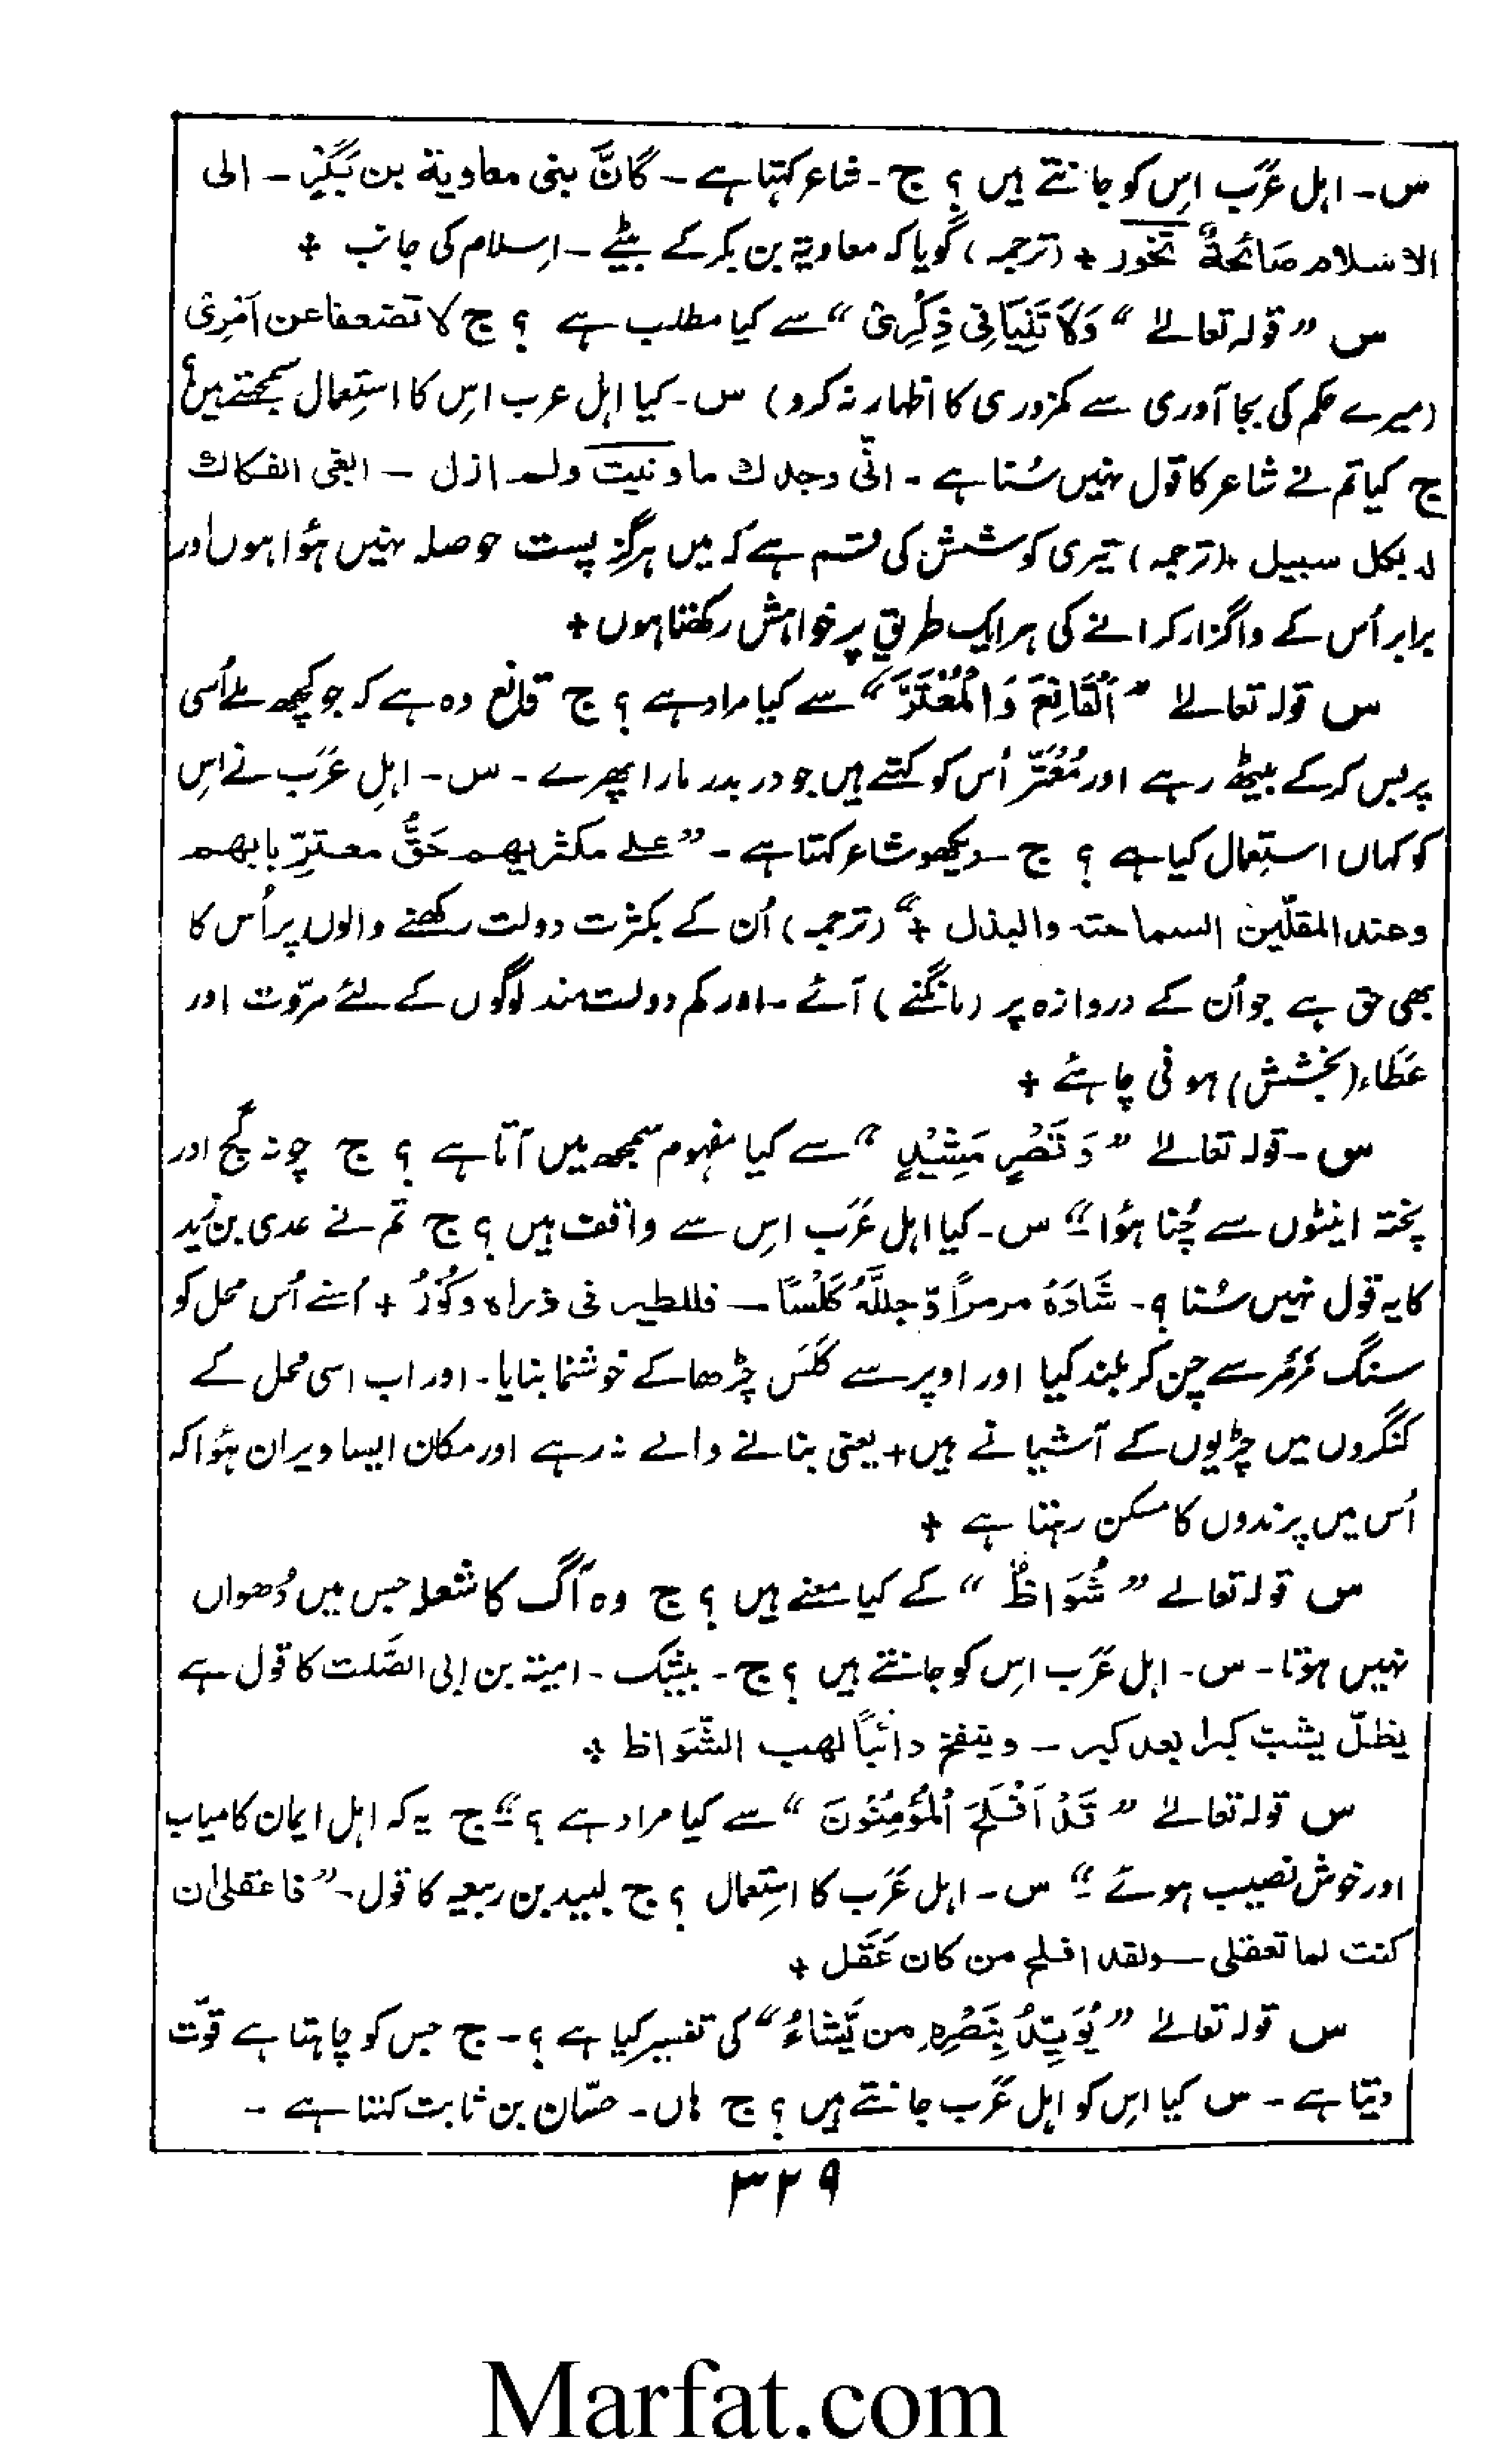 س۔ اہل عَرَب اِس کو جانتے ہیں ؟ ج۔ شاعر کہتا ہے ۔ کَاَنَّ بنی معاویة بن بَکْرٍ۔ الی
الاسلام صَائحةٌ تخور + (ترجمہ) گویا کہ معاویۃ بن بکر کے بیٹے ۔ اِسلام کی جانب +
س "قولہ تعالےٰ "وَلَا تَنِیَا فِی ذِکْرِیْ" سے کیا مطلب ہے ؟ ج لا تضعفا عن اَمْرِیْ
(میرے حکم کی بجا آوری سے کمزوری کا اظہار نہ کرو) س۔ کیا اہل عرب اِس کا استِعمال سمجھتے ہیں؟
ج کیا تم نے شاعر کا قول نہیں سُنا ہے ۔ انّی وجدك ما ونیت ولم ازل ۔ ابغی الفکاك
لہ بکل سبیل + (ترجمہ) تیری کوشش کی قسم ہے کہ میں ہرگز پست حوصلہ نہیں ہُوا ہوں اور
برابر اُس کے واگزار کرانے کی ہر ایک طریق پر خواہش رکھتا ہوں +
س قولہ تعالےٰ "اَلْقَانِعَ وَالْمُعْتَرَّ" سے کیا مراد ہے ؟ ج قانع وہ ہے کہ جو کچھ ملے اُسی
پر بس کر کے بیٹھ رہے اور مُعْتَرّ اُس کو کہتے ہیں جو در بدر مارا پھرے ۔ س۔ اہلِ عَرَب نے اِس
کو کہاں استِعمال کیا ہے ؟ ج۔ دیکھو شاعر کہتا ہے ۔ "علے مکثریھم حَقُّ معترّ بابھم
وعند المقلّین السماحتہ والبذل +" (ترجمہ) اُن کے بکثرت دولت رکھنے والوں پر اُس کا
بھی حق ہے جو اُن کے دروازہ پر (مانگنے) آئے ۔ اور کم دولت مند لوگوں کے لئے مروّت اور
عَطَاء (بخشش) ہونی چاہئے +
س ۔ قولہ تعالےٰ "وَقَصْرٍ مَشِیْدٍ" سے کیا مفہوم سمجھ میں آتا ہے ؟ ج چونہ گچ اور
پختہ اینٹوں سے چُنا ہُوا" س۔ کیا اہل عَرَب اِس سے واقف ہیں ؟ ج تم نے عدی بن زَید
کا یہ قول نہیں سُنا ؟۔ شَادَہٗ مرمراً وّجللَّہُ کَلْسًا ۔ فللطیر فی ذراہ وکُوْرٌ + اُسنے اُس محل کو
سنگ مَرمَر سے چن کر بلند کیا اور اوپر سے کَلَس چڑھا کے خوشنما بنایا۔ اور اب اسی محل کے
کنگروں میں چڑیوں کے آشیانے ہیں + یعنی بنانے والے نہ رہے اور مکان ایسا ویران ہُوا کہ
اُس میں پرندوں کا مسکن رہتا ہے +
س قولہ تعالےٰ "شُوَاظٌ" کے کیا معنے ہیں ؟ ج وہ آگ کا شعلہ جس میں دُھواں
نہیں ہوتا۔ س۔ اہل عَرَب اِس کو جانتے ہیں ؟ ج۔ بیشک ۔ امیتہ بن ابی الصَّلت کا قول ہے
یظلّ یشب کیرا بعد کیر ۔ وینفخ دائباً لھب الشّوَاظ +
س قولہ تعالےٰ "قَدْ اَفْلَحَ الْمُؤمِنُوْنَ" سے کیا مراد ہے ؟" ج یہ کہ اہل ایمان کامیاب
اور خوش نصیب ہوئے" س۔ اہل عَرَب کا استِعمال ؟ ج لبید بن ربیعہ کا قول۔ "فاعقلی ان
کنت لما تعقلی ۔ ولقد افلح من کان عَقَل +
س قولہ تعالےٰ "یُوَیِّدُ بِنَصْرِہٖ من یَّشَاءُ" کی تفسیر کیا ہے ؟۔ ج جس کو چاہتا ہے قوّت
دیتا ہے۔ س کیا اِس کو اہل عَرَب جانتے ہیں ؟ ج ہاں۔ حسّان بن ثابت کہتا ہے ۔
۳۲۹
Marfat.com